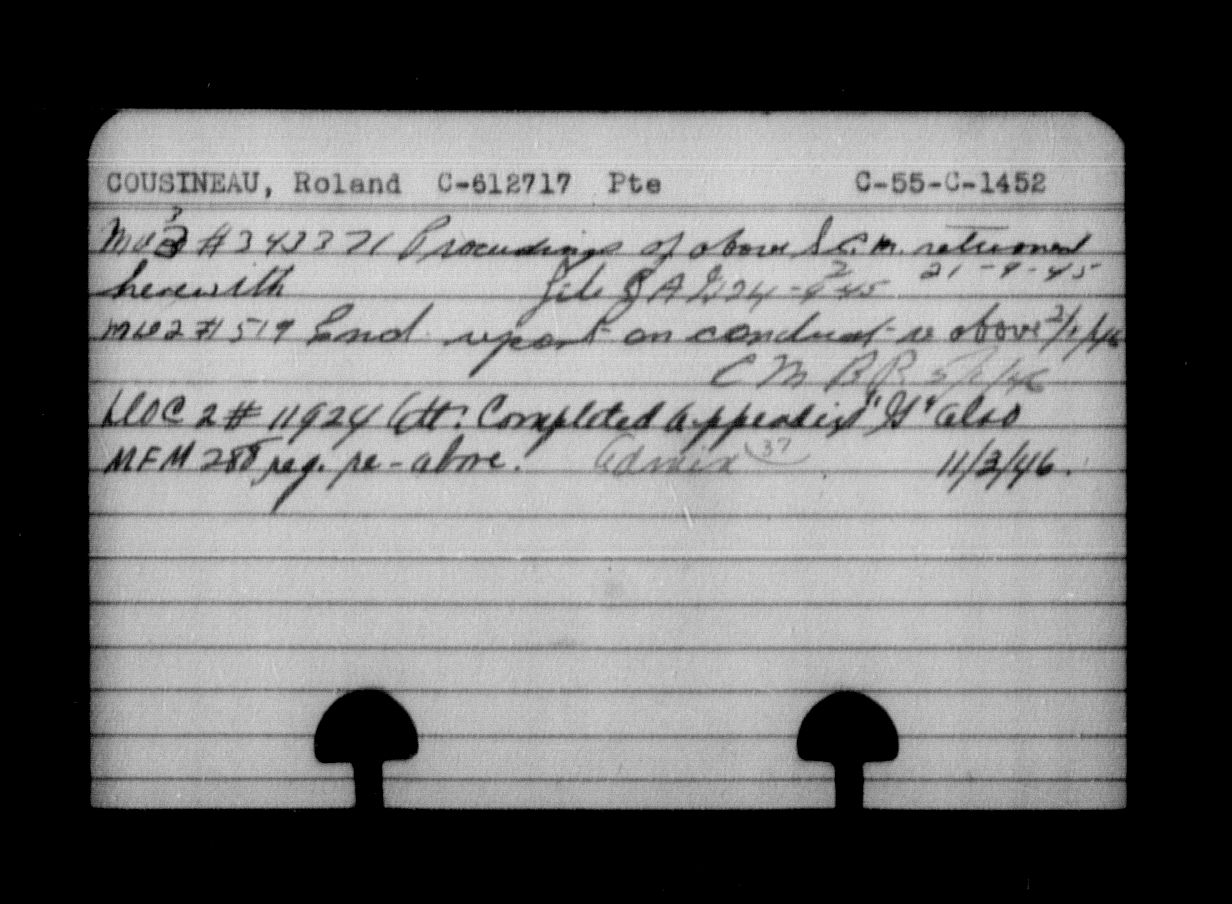 COUSINEAU, Roland C-612717 Pte C-55-C-1452
#343371 Proceedings of above S.C.M. returned
herewith file J A G 24-9-45 21-9-45
#1519 End report on conduct re above
C M B R 5/2/46
DOC 2 # 11924 Att: Completed Appendix "G" also
MFM 288 reg. re-above. Admin 37 11/3/46.